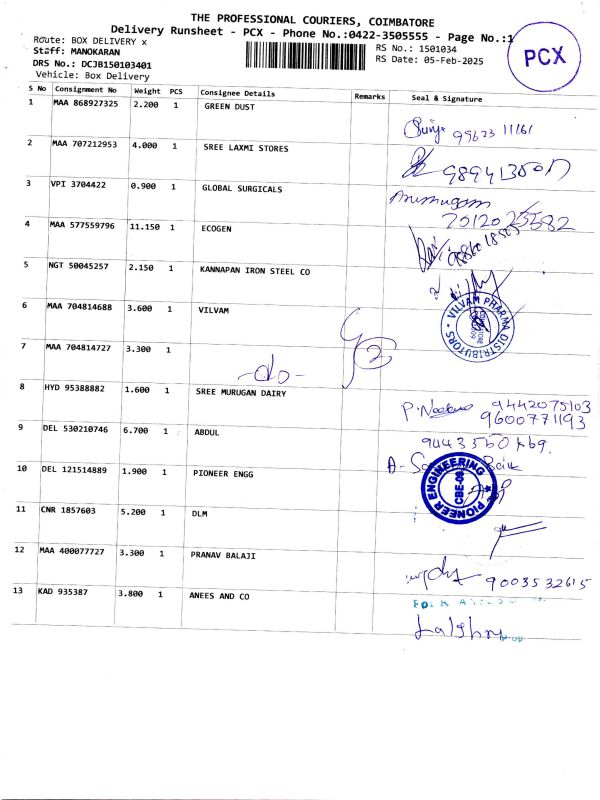 THE PROFESSIONAL COURIERS, COIMBATORE
Delivery Runsheet - PCX - Phone No.:0422-3505555 - Page No.:1
PCX
Route: BOX DELIVERY x
RS No.: 1501034
Staff: MANOKARAN
RS Date: 05-Feb-2025
DRS No.: DCJB150103401
Vehicle: Box Delivery
S No Consignment No Weight PCS Consignee Details Remarks Seal & Signature
1 MAA 868927325 2.200 1 GREEN DUST
99623 11161
2 MAA 707212953 4.000 1 SREE LAXMI STORES
3 VPI 3704422 0.900 1 GLOBAL SURGICALS
Arumugam
4 MAA 577559796 11.150 1 ECOGEN
5 NGT 50045257 2.150 1 KANNAPAN IRON STEEL CO
6 MAA 704814688 3.600 1 VILVAM
VILVAM PHARMA DISTRIBUTORS
7 MAA 704814727 3.300 1
-do-
2
8 HYD 95388882 1.600 1 SREE MURUGAN DAIRY
9442075103
9600771193
9 DEL 530210746 6.700 1 ABDUL
10 DEL 121514889 1.900 1 PIONEER ENGG
PIONEER ENGINEERING
CBE-09
11 CNR 1857603 5.200 1 DLM
12 MAA 400077727 3.300 1 PRANAV BALAJI
9003532615
13 KAD 935387 3.800 1 ANEES AND CO